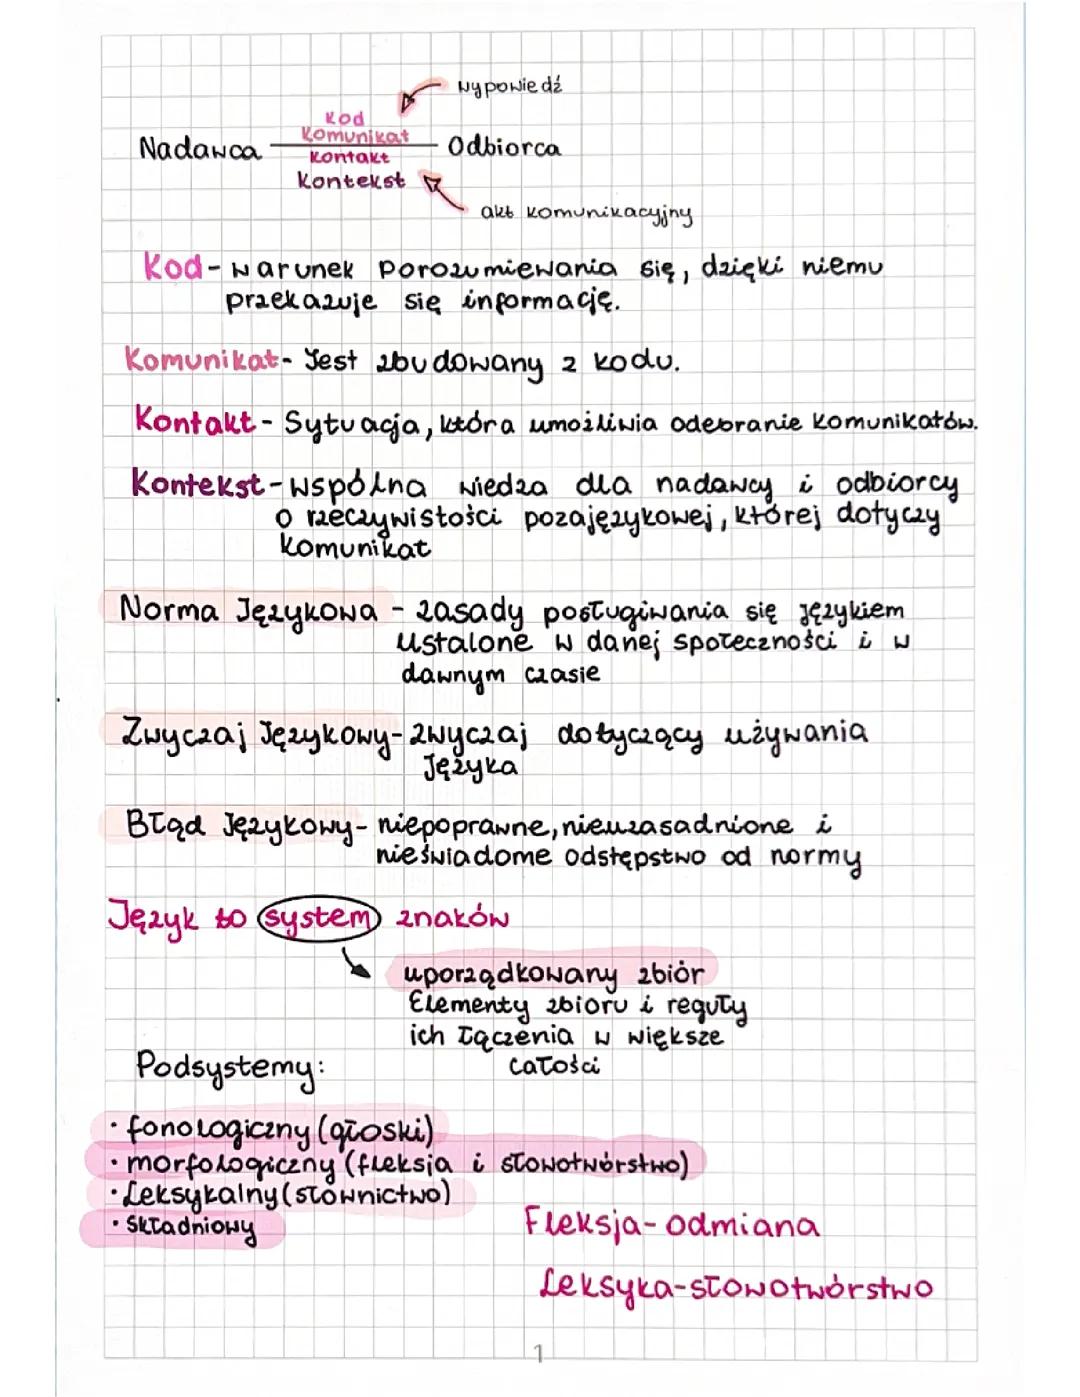 wypowiedź
Kod
Komunikat
Nadawca Odbiorca
Kontakt
Kontekst
akt komunikacyjny
Kod - warunek porozumiewania się, dzięki niemu
przekazuje się informację.
Komunikat - Jest zbudowany z kodu.
Kontakt - Sytuacja, która umożliwia odebranie komunikatów.
Kontekst - wspólna wiedza dla nadawcy i odbiorcy
o rzeczywistości pozajęzykowej, której dotyczy
komunikat
Norma Językowa - zasady posługiwania się językiem
ustalone w danej społeczności i w
dawnym czasie
Zwyczaj Językowy - zwyczaj dotyczący używania
Języka
Błąd Językowy - niepoprawne, nieuzasadnione i
nieświadome odstępstwo od normy
Język to system znaków
uporządkowany zbiór
Elementy zbioru i reguły
ich łączenia w większe
całości
Podsystemy:
· fonologiczny (głoski)
· morfologiczny (fleksja i słowotwórstwo)
· Leksykalny (słownictwo)
· Składniowy
Fleksja - odmiana
Leksyka - słowotwórstwo
1